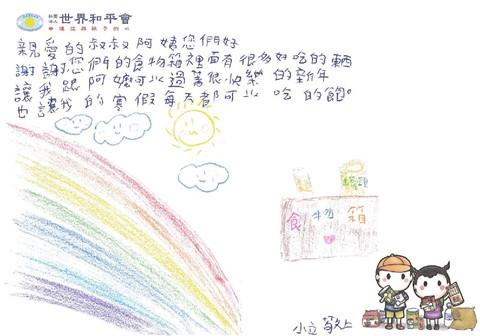 社團法人 世界和平會
親愛的叔叔阿姨您們好
謝謝您們的食物箱裡面有很多好吃的東西
讓我跟阿嬤可以過著很快樂的新年
也讓我的寒假每天都可以吃的飽。
食物箱
小立 敬上